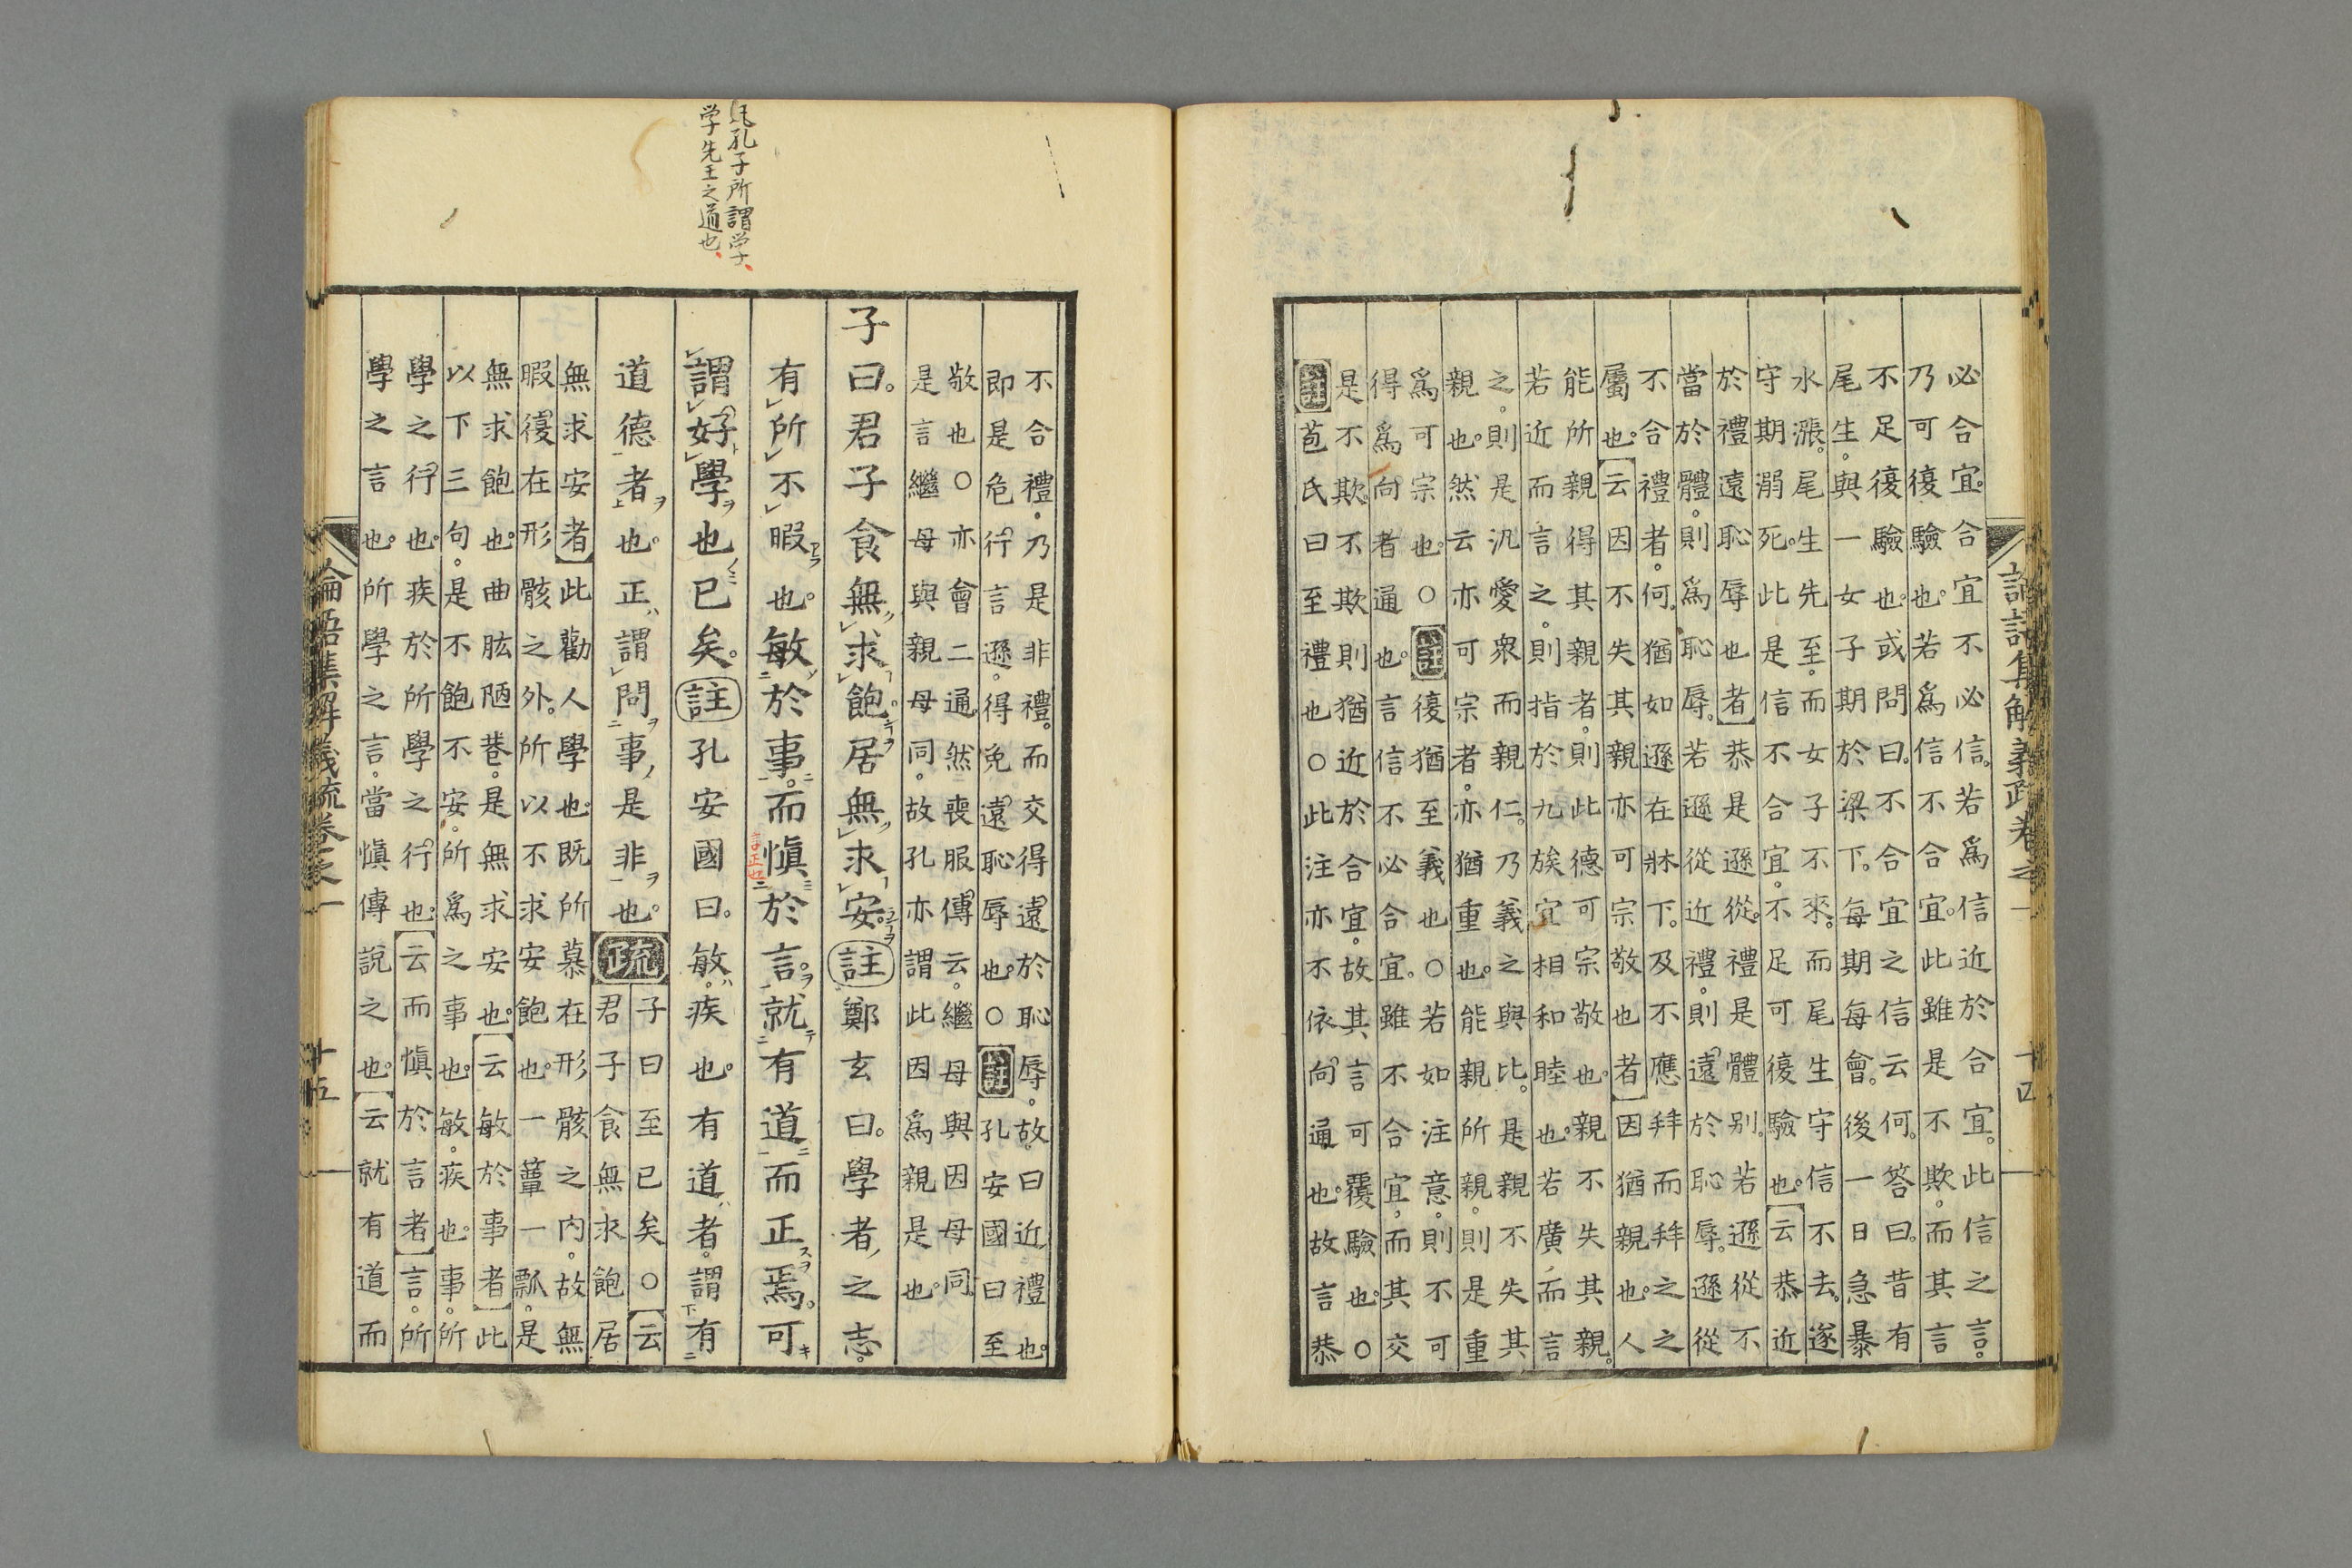 必合宜。合宜不必信。若爲信近於合宜。此信之言。
乃可復驗也。若爲信不合宜。此雖是不欺。而其言
不足復驗也。或問曰。不合宜之信云何。答曰。昔有
尾生。與一女子期於梁下。每期每會。後一日急暴
水漲。尾生先至。而女子不來。而尾生守信不去。遂
守期溺死。此是信不合宜。不足可復驗也。云恭近
於禮遠恥辱也者恭是遜從。禮是體別。若遜從不
當於體。則爲恥辱。若遜從近禮。則遠於恥辱。遜從
不合禮者。何。猶如遜在牀下。及不應拜而拜之之
屬也。云因不失其親亦可宗敬也者因猶親也。人
能所親得其親者。則此德可宗敬也。親不失其親。
若近而言之。則指於九族宜相和睦也。若廣而言
之。則是汎愛衆而親仁。乃義之與比。是親不失其
親也。然云亦可宗者。亦猶重也。能親所親。則是重
爲可宗也。○註復猶至義也○若如注意。則不可
得爲向者通也。言信不必合宜。雖不合宜。而其交
是不欺。不欺則猶近於合宜。故其言可覆驗也。○
註苞氏曰至禮也○此注亦不依向通也。故言恭
論語集解義疏卷之一 十四
不合禮。乃是非禮。而交得遠於恥辱。故曰近禮也。
即是危行言遜。得免遠恥辱也。○註孔安國曰至
敬也○亦會二通。然喪服傳云。繼母與因母同。
是言繼母與親母同。故孔亦謂此因爲親是也。
子曰。君子食無求飽。居無求安。註鄭玄曰。學者之志。
有所不暇也。敏於事。而愼於言。就有道而正焉。可
謂好學也已矣。註孔安國曰。敏。疾也。有道者。謂有
道德者也。正謂問事是非也。疏子曰至已矣○云
君子食無求飽居
無求安者此勸人學也。既所慕在形骸之內。故無
暇復在形骸之外。所以不求安飽也。一簞一瓢。是
無求飽也。曲肱陋巷。是無求安也。云敏於事者此
以下三句。是不飽不安。所爲之事也。敏。疾也。事。所
學之行也。疾於所學之行也。云而愼於言者言。所
學之言也。所學之言。當愼傳說之也。云就有道而
論語集解義疏卷之一 十五
凡孔子所謂学、
学先王之道也、
言正也